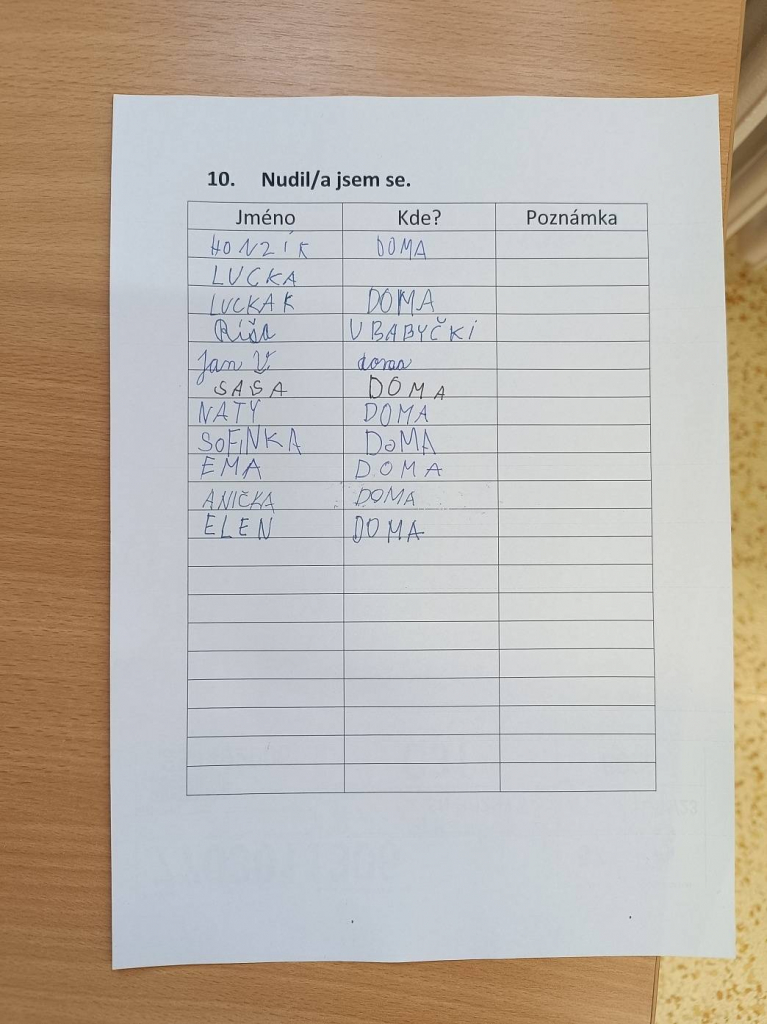 10. Nudil/a jsem se.
Jméno Kde? Poznámka
HONZÍK DOMA
LUCKA
LUCKA K DOMA
Ríša U BABYČKI
Jan V. doma
SASA DOMA
NATY DOMA
SOFiNKA DoMA
EMA DOMA
ANIČKA DOMA
ELEN DOMA